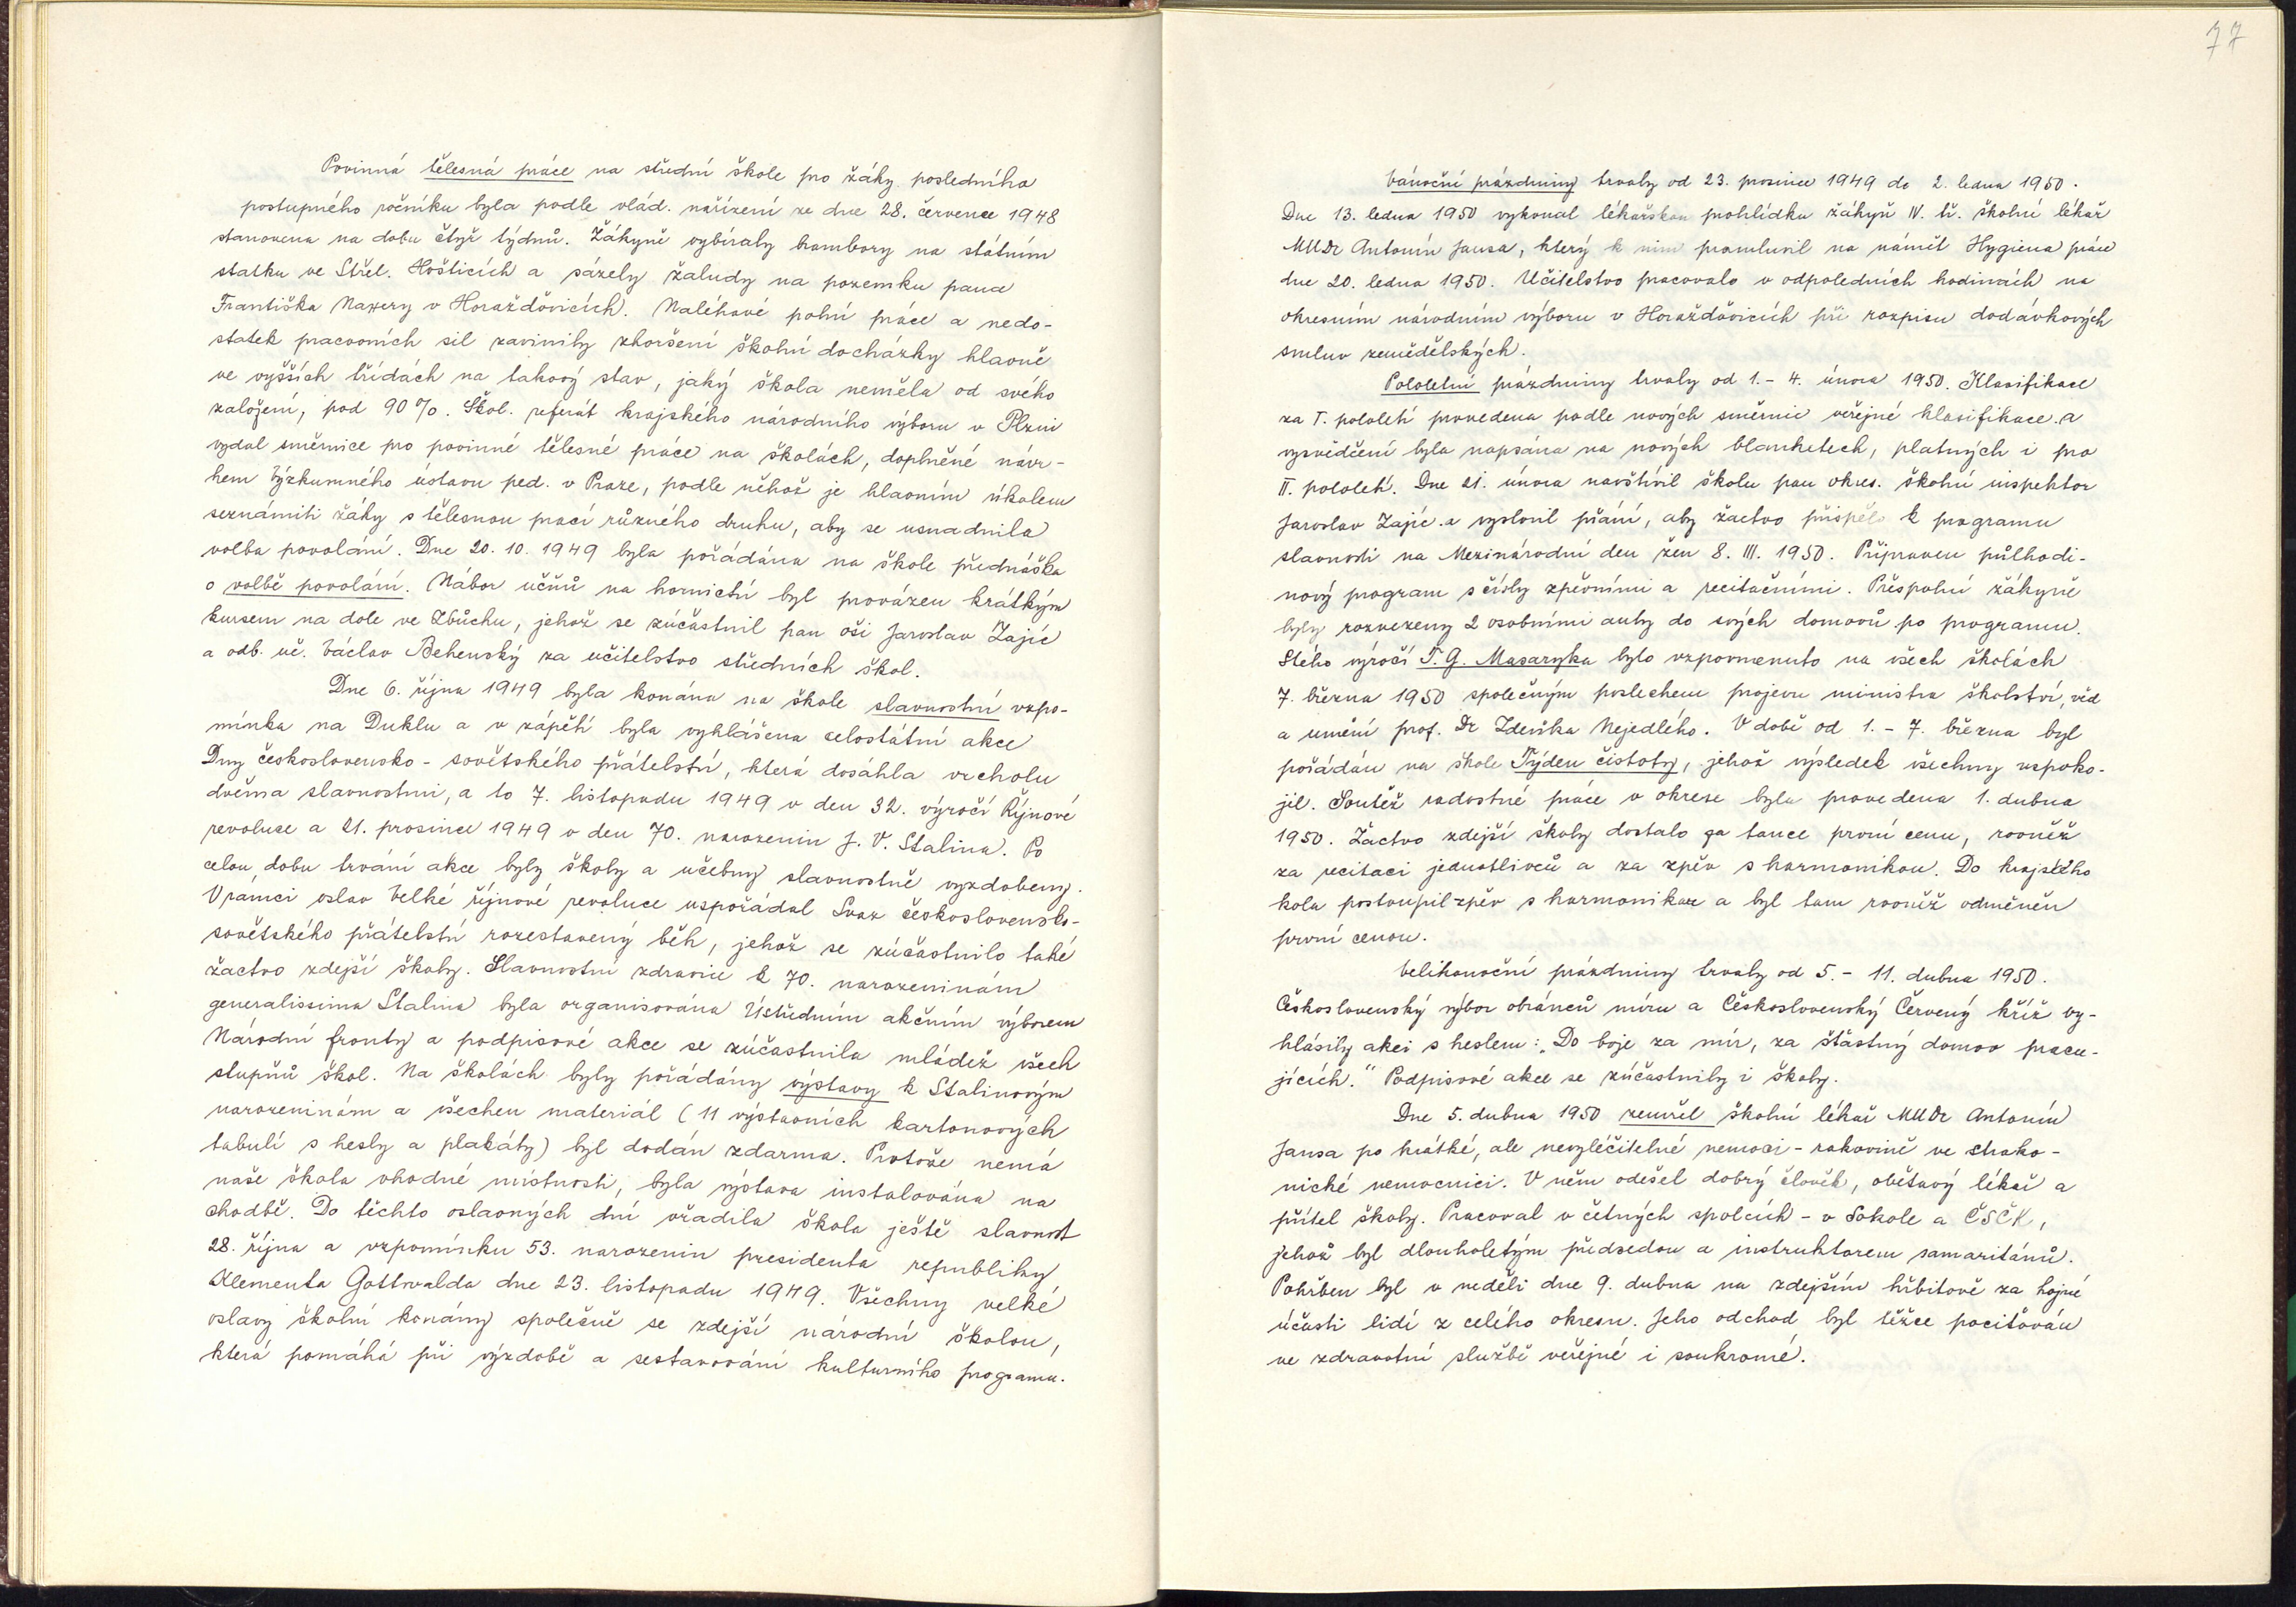 Povinná tělesná práce na střední škole pro žáky posledního
postupného ročníku byla podle vlád. nařízení ze dne 28. července 1948
stanovena na dobu čtyř týdnů. Žákyně vybíraly brambory na státním
statku ve Střel. Hošticích a sázely žaludy na pozemku pana
Františka Naxery v Horažďovicích. Naléhavé polní práce a nedo-
statek pracovních sil zavinily zhoršení školní docházky hlavně
ve vyšších třídách na takový stav, jaký škola neměla od svého
založení, pod 90%. Škol. referát krajského národního výboru v Plzni
vydal směrnice pro povinné tělesné práce na školách, doplněné návr-
hem Výzkumného ústavu ped. v Praze, podle něhož je hlavním úkolem
seznámiti žáky s tělesnou prací různého druhu, aby se usnadnila
volba povolání. Dne 20. 10. 1949 byla pořádána na škole přednáška
o volbě povolání. Nábor učňů na hornictví byl provázen krátkým
kursem na dole ve Zbůchu, jehož se zúčastnil pan oši Jaroslav Zajíc
a odb. uč. Václav Behenský za učitelstvo středních škol.
Dne 6. října 1949 byla konána na škole slavnostní vzpo-
mínka na Duklu a v zápětí byla vyhlášena celostátní akce
Dny československo-sovětského přátelství, která dosáhla vrcholu
dvěma slavnostmi, a to 7. listopadu 1949 v den 32. výročí Říjnové
revoluce a 21. prosince 1949 v den 70. narozenin J. V. Stalina. Po
celou dobu trvání akce byly školy a učebny slavnostně vyzdobeny.
V rámci oslav Velké říjnové revoluce uspořádal Svaz československo-
sovětského přátelství rozestavený běh, jehož se zúčastnilo také
žactvo zdejší školy. Slavnostní zdravice k 70. narozeninám
generalissima Stalina byla organisována Ústředním akčním výborem
Národní fronty a podpisové akce se zúčastnila mládež všech
stupňů škol. Na školách byly pořádány výstavy k Stalinovým
narozeninám a všechen materiál (11 výstavních kartonových
tabulí s hesly a plakáty) byl dodán zdarma. Protože nemá
naše škola vhodné místnosti, byla výstava instalována na
chodbě. Do těchto oslavných dní vřadila škola ještě slavnost
28. října a vzpomínku 53. narozenin presidenta republiky
Klementa Gottwalda dne 23. listopadu 1949. Všechny velké
oslavy školní konány společně se zdejší národní školou,
která pomáhá při výzdobě a sestavování kulturního programu.
77
Vánoční prázdniny trvaly od 23. prosince 1949 do 2. ledna 1950.
Dne 13. ledna 1950 vykonal lékařskou prohlídku žákyň IV. tř. školní lékař
MUDr Antonín Jansa, který k nim promluvil na námět Hygiena práce
dne 20. ledna 1950. Učitelstvo pracovalo v odpoledních hodinách na
okresním národním výboru v Horažďovicích při rozpisu dodávkových
smluv zemědělských.
Pololetní prázdniny trvaly od 1.-4. února 1950. Klasifikace
za I. pololetí provedena podle nových směrnic veřejné klasifikace a
vysvědčení byla napsána na nových blanketech, platných i pro
II. pololetí. Dne 21. února navštívil školu pan okres. školní inspektor
Jaroslav Zajíc a vyslovil přání, aby žactvo přispělo k programu
slavnosti na Mezinárodní den žen 8. III. 1950. Připraven půlhodi-
nový program s čísly zpěvními a recitačními. Přespolní žákyně
byly rozvezeny 2 osobními auty do svých domovů po programu.
Stého výročí T. G. Masaryka bylo vzpomenuto na všech školách
7. března 1950 společným poslechem projevu ministra školství, věd
a umění prof. Dr Zdeňka Nejedlého. V době od 1.-7. března byl
pořádán na škole Týden čistoty, jehož výsledek všechny uspoko-
jil. Soutěž radostné práce v okrese byla provedena 1. dubna
1950. Žactvo zdejší školy dostalo za tance první cenu, rovněž
za recitaci jednotlivců a za zpěv s harmonikou. Do krajského
kola postoupil zpěv s harmonikou a byl tam rovněž odměněn
první cenou.
Velikonoční prázdniny trvaly od 5.-11. dubna 1950.
Československý výbor obránců míru a Československý Červený kříž vy-
hlásily akci s heslem: „Do boje za mír, za šťastný domov pracu-
jících.“ Podpisové akce se zúčastnily i školy.
Dne 5. dubna 1950 zemřel školní lékař MUDr Antonín
Jansa po krátké, ale nevyléčitelné nemoci - rakovině ve strako-
nické nemocnici. V něm odešel dobrý člověk, obětavý lékař a
přítel školy. Pracoval v četných spolcích - v Sokole a ČSČK,
jehož byl dlouholetým předsedou a instruktorem samaritánů.
Pohřben byl v neděli dne 9. dubna na zdejším hřbitově za hojné
účasti lidí z celého okresu. Jeho odchod byl těžce pociťován
ve zdravotní službě veřejné i soukromé.